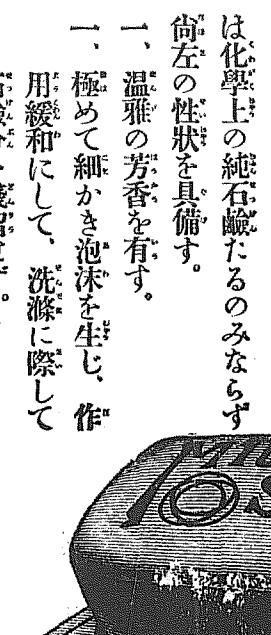 は化學上の純石鹼たるのみならず
尙左の性狀を具備す。
一、溫雅の芳香を有す。
一、極めて細かき泡沫を生じ、作
用緩和にして、洗滌に際して